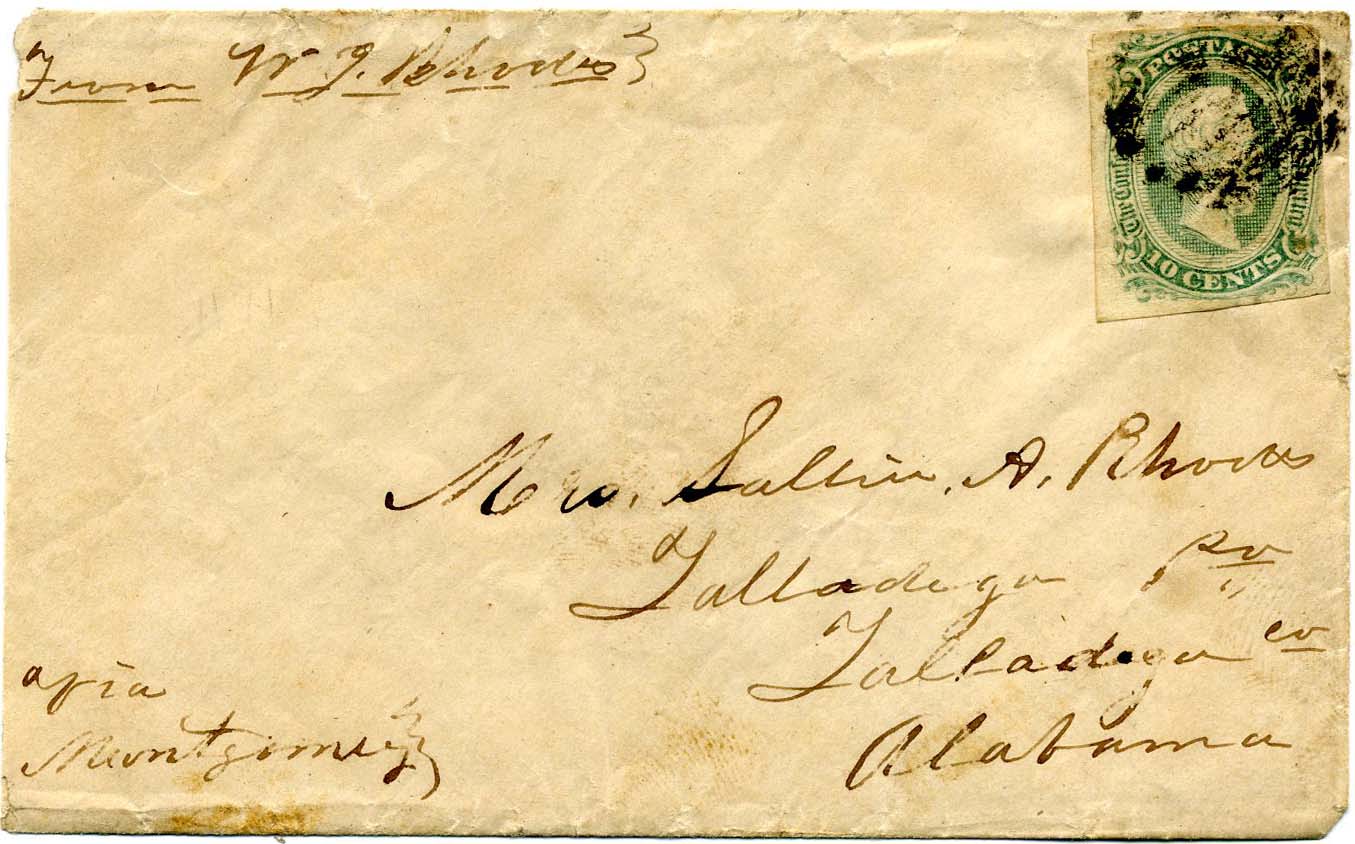 From W. J. Rhodes
POSTAGE
The Con
America
10 CENTS
Mrs. Sallie. A. Rhodes
Talladega Po
Talladega co
Alabama
via
Montgomery